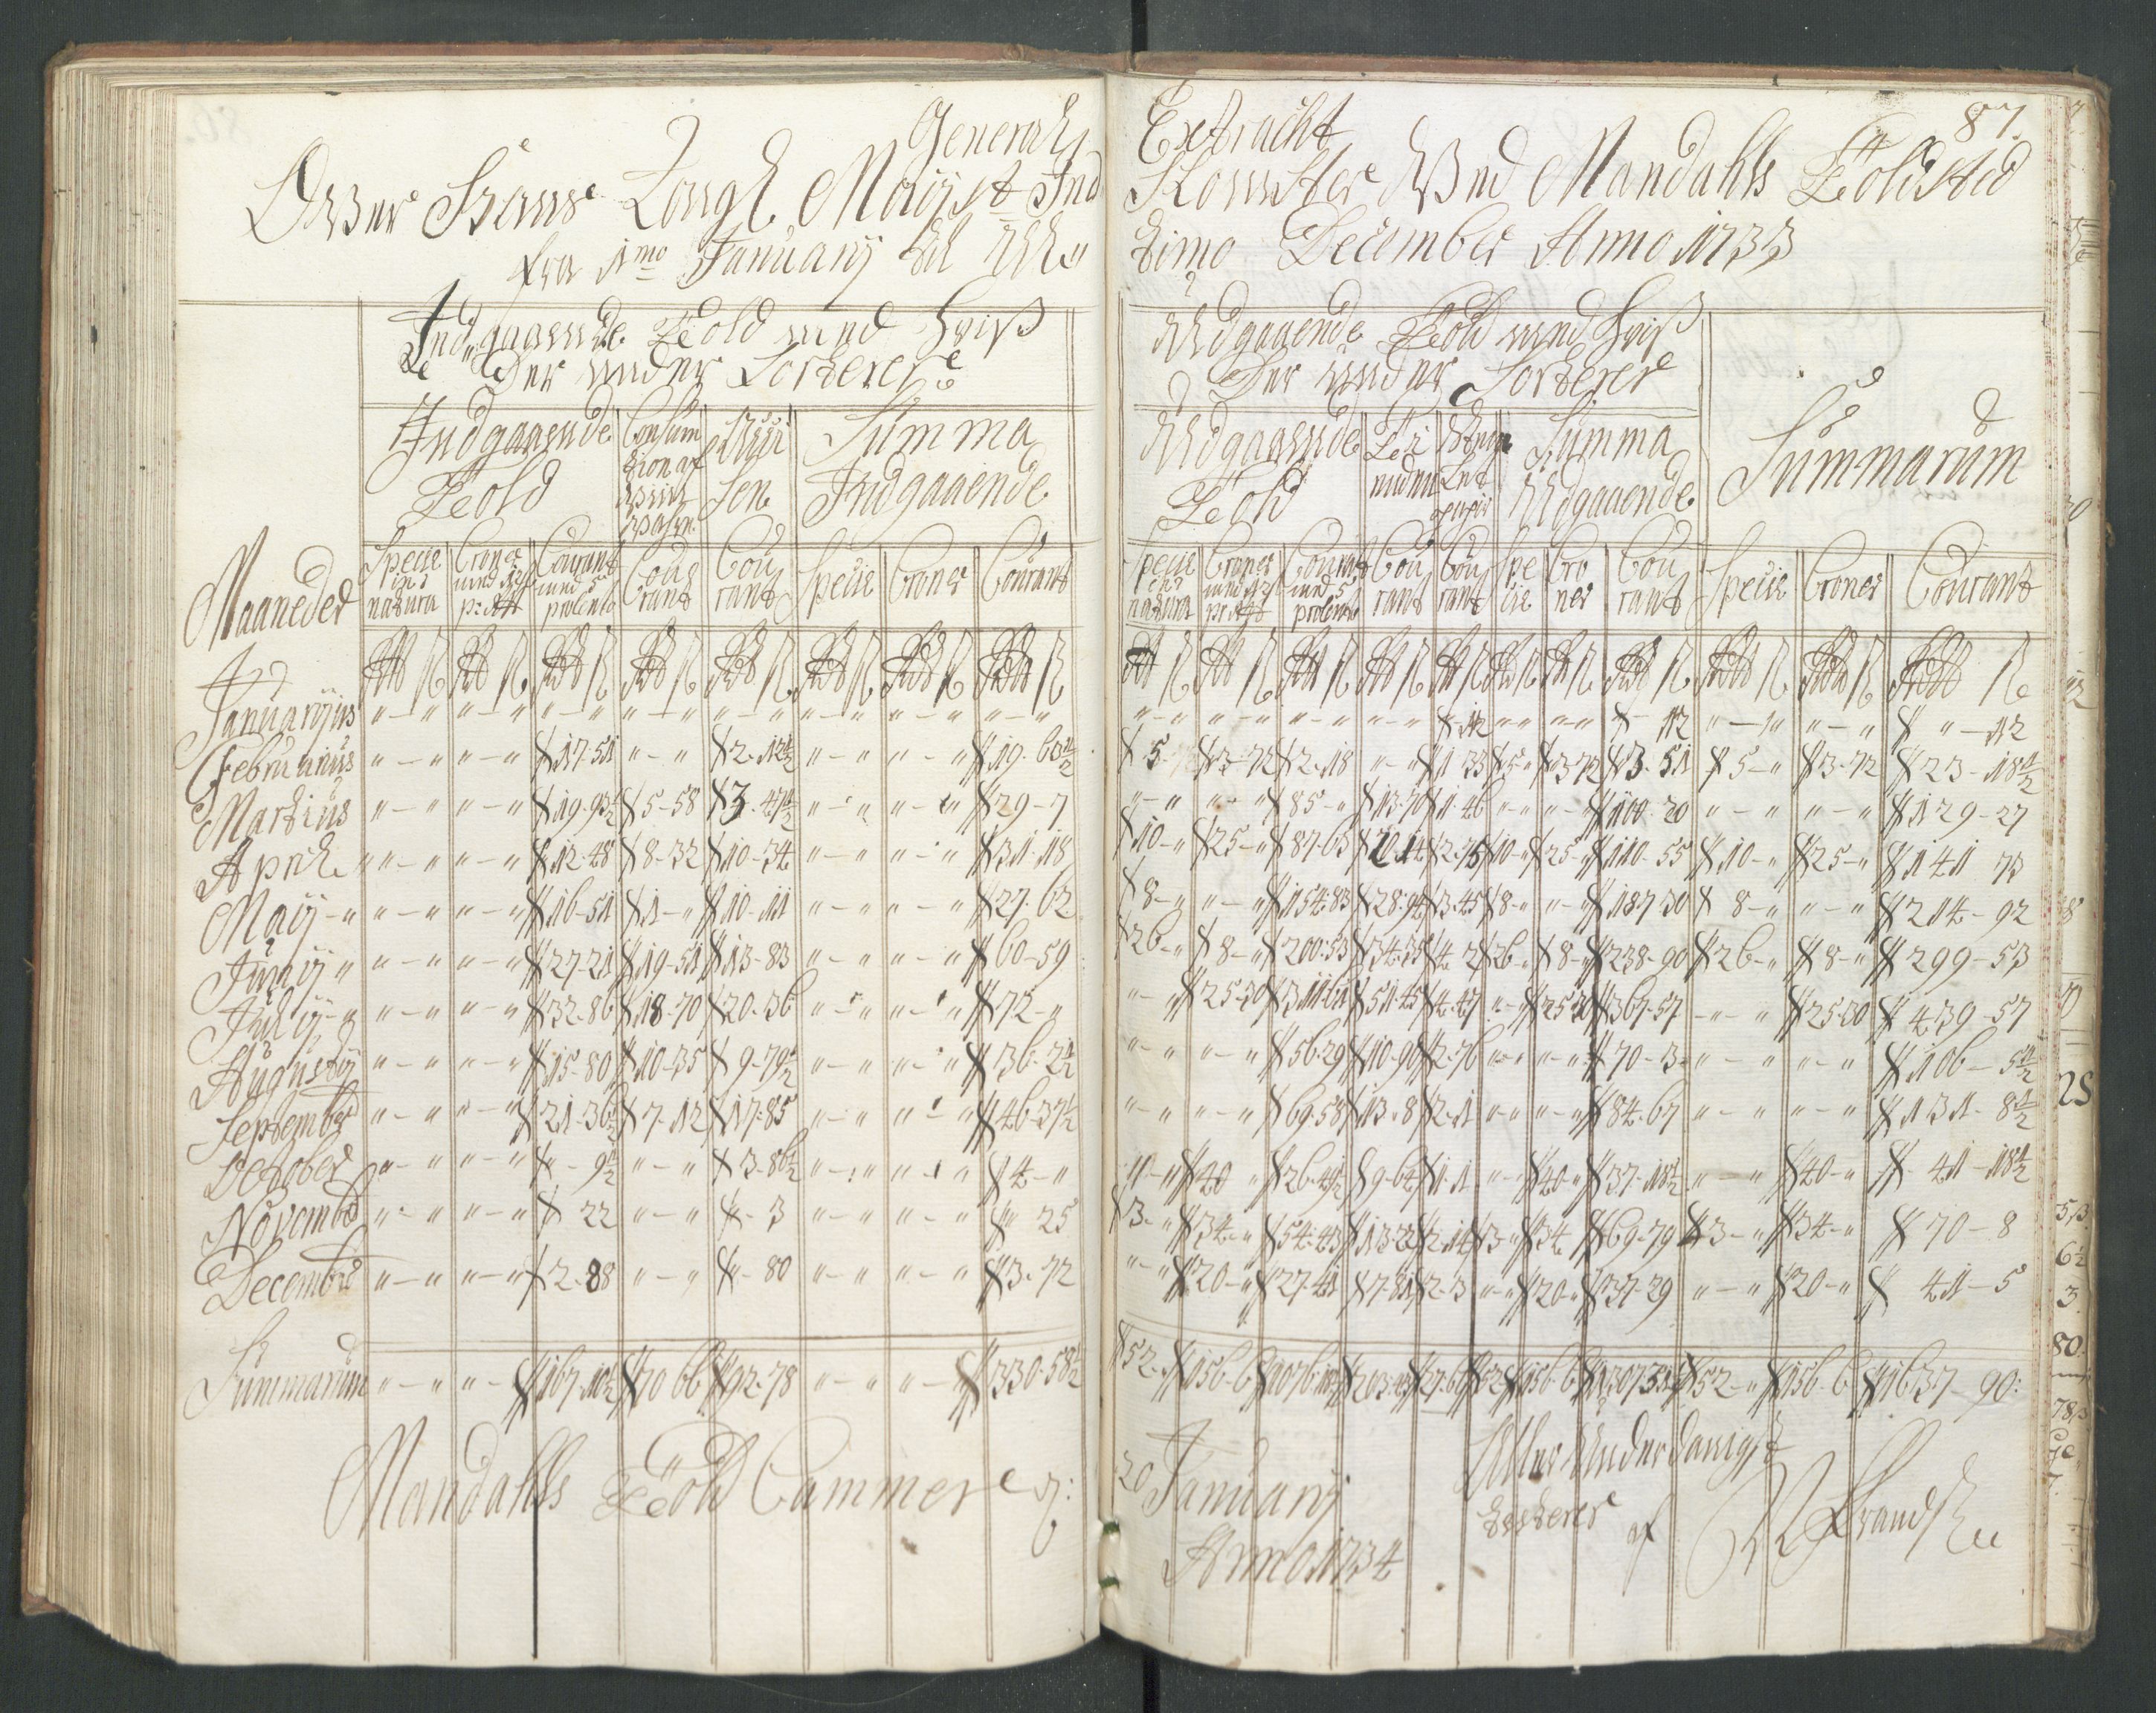 General Extracht
87.
Over Hans Kongl Mayst Ind Komster Ved Mandahls Told Sted
fra 1mo January til Ultimo December Anno 1733
Indgaaende Told med hvis Der under Sorterer
Udgaaende Told med hvis Der under Sorterer
Indgaaende Told
Consumtion af
Summa Indgaaende
Udgaaende Told
Summa Udgaaende
Summarum
Maaneder
Specie in natura
Croner
Courant
Courant
Courant
Specie
Croner
Courant
Specie in natura
Croner
Courant
Courant
Courant
Specie
Croner
Courant
Specie
Croner
Courant
Januarijus " - " " - " " - " " - " " - " " - " " - " " - " " - " " - " " - " " - " - 12 " - " " - " - 12 " - " " - " " - 12
Februarius " - " " - " 17-51 " - " 2-12½ " - " " - " 19-63½ 5- 3-72 2-18 " - " 1 33 5 " 3 72 3-51 5-" 3-72 23-18½
Martius " - " " - " 19-93½ 5-58 3-47½ " - " " - " 29-7 " - " " - " 85-" 13-70 1 46 " - " " - " 100-20 " - " " - " 129-27
April " - " " - " 12-48 8-32 10-34 " - " " - " 31-18 10-" 25-" 87-63 20 14 2-75 10-" 25-" 110-55 10-" 25-" 141 73
Maij " - " " - " 16-51 1-" 10-11 " - " " - " 27-62 8-" " - " 154-83 28-94 3-45 8-" " - " 187 30 8-" " - " 214-92
Junij " - " " - " 27-21 19-51 13-83 " - " " - " 60-59 26-" 8-" 200-53 34-35 4 2 26-" 8-" 238-90 26-" 8-" 299-53
Julij " - " " - " 32-86 18-70 20-36 " - " " - " 72-" " - " 25-30 311-61 51-45 4-47 " - " 25 30 367-57 " - " 25-30 439-57
Augustij " - " " - " 15-80 10-35 9-79½ " - " " - " 36-2½ " - " " - " 56-29 10-90 2-76 " - " " - " 70-3 " - " " - " 106-5½
September " - " " - " 21-36½ 7-12 17-85 " - " " - " 46-37½ " - " " - " 69-58 13-8 2-1 " - " " - " 84-67 " - " " - " 131-8½
October " - " " - " - 9½ " - " 3-86½ " - " " - " 4-" " - " 40 26-49½ 9-64 1-1 " - " 40-" 37-18½ " - " 40-" 41-18½
November " - " " - " 22 " - " - 3 " - " " - " 25 3-" 34-" 54-43 13-22 2-14 3-" 34 69-79 3-" 34-" 70-8
December " - " " - " 2-88 " - " - 80 " - " " - " 3-72 " - " 20-" 27-41 7-81 2-3 " - " 20-" 37-29 " - " 20-" 41-5
Summarum " - " " - " 167-10½ 70 66 92-78 " - " " - " 330-58½ 52-" 156-6 52-" 156-6 1637-90
Mandahls Told Cammer d:
20 January
Anno 1734
Aller Underdanigst
af